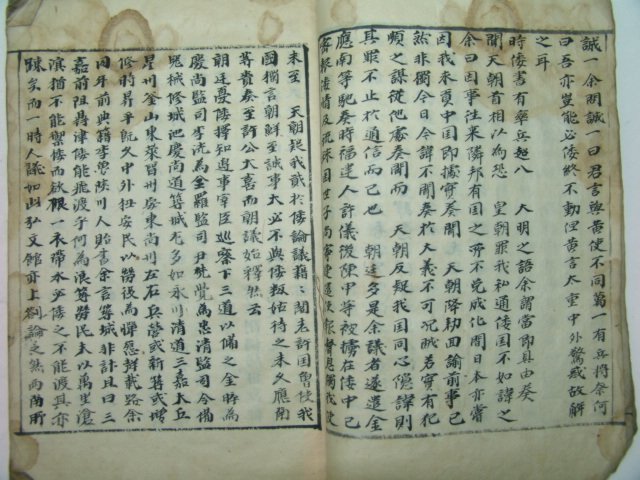 誠一余問誠一曰君言與黃使不同萬一有兵將奈何
曰吾亦豈能必倭終不動但黃言太重中外驚惑故解
之耳
時倭書有率兵超入 大明之語余謂當即具由奏
聞天朝首相以為恐 皇朝罪我私通倭國不如諱之
余曰因事往來隣邦有國之所不免成化間日本亦嘗
因我求貢中國即據實奏聞 天朝降勑回諭前事已
然非獨今日今諱不聞奏於大義不可况賊若實有犯
順之謀從他處奏聞而 天朝反疑我国同心隱諱則
其罪不止於通信而已也 朝廷多是余議者遂遣金
應南等馳奏時福建人許儀後陳甲等被擄在倭中已
密報倭情及琉球国世子尚寧連遣使報聲息獨我使
未至 天朝疑我貳於倭論議藉〻閣老許国曾使我
國獨言朝鮮至誠事大必不與倭叛姑待之未久應南
等賫奏至許公大喜而朝議始釋然云
朝廷憂倭擇知邊事宰臣巡察下三道以備之金睟為
慶尚監司李洸為全羅監司尹先覺為忠清監司令備
器械修城池慶尚道築城尤多如永川清道三嘉大丘
星州釜山東萊晋州安東尚州左右兵營或新築或增
修時昇平既久中外狃安民以勞役為憚怨讟載路余
同年前典籍李魯陜川人貽書余言築城非計且曰三
嘉前阻鼎津倭能飛渡乎何為浪築勞民夫以萬里滄
溟猶不能禦倭而欲限一衣帶水必倭之不能渡其亦
踈矣而一時人議如此弘文館亦上劄論之然兩南所